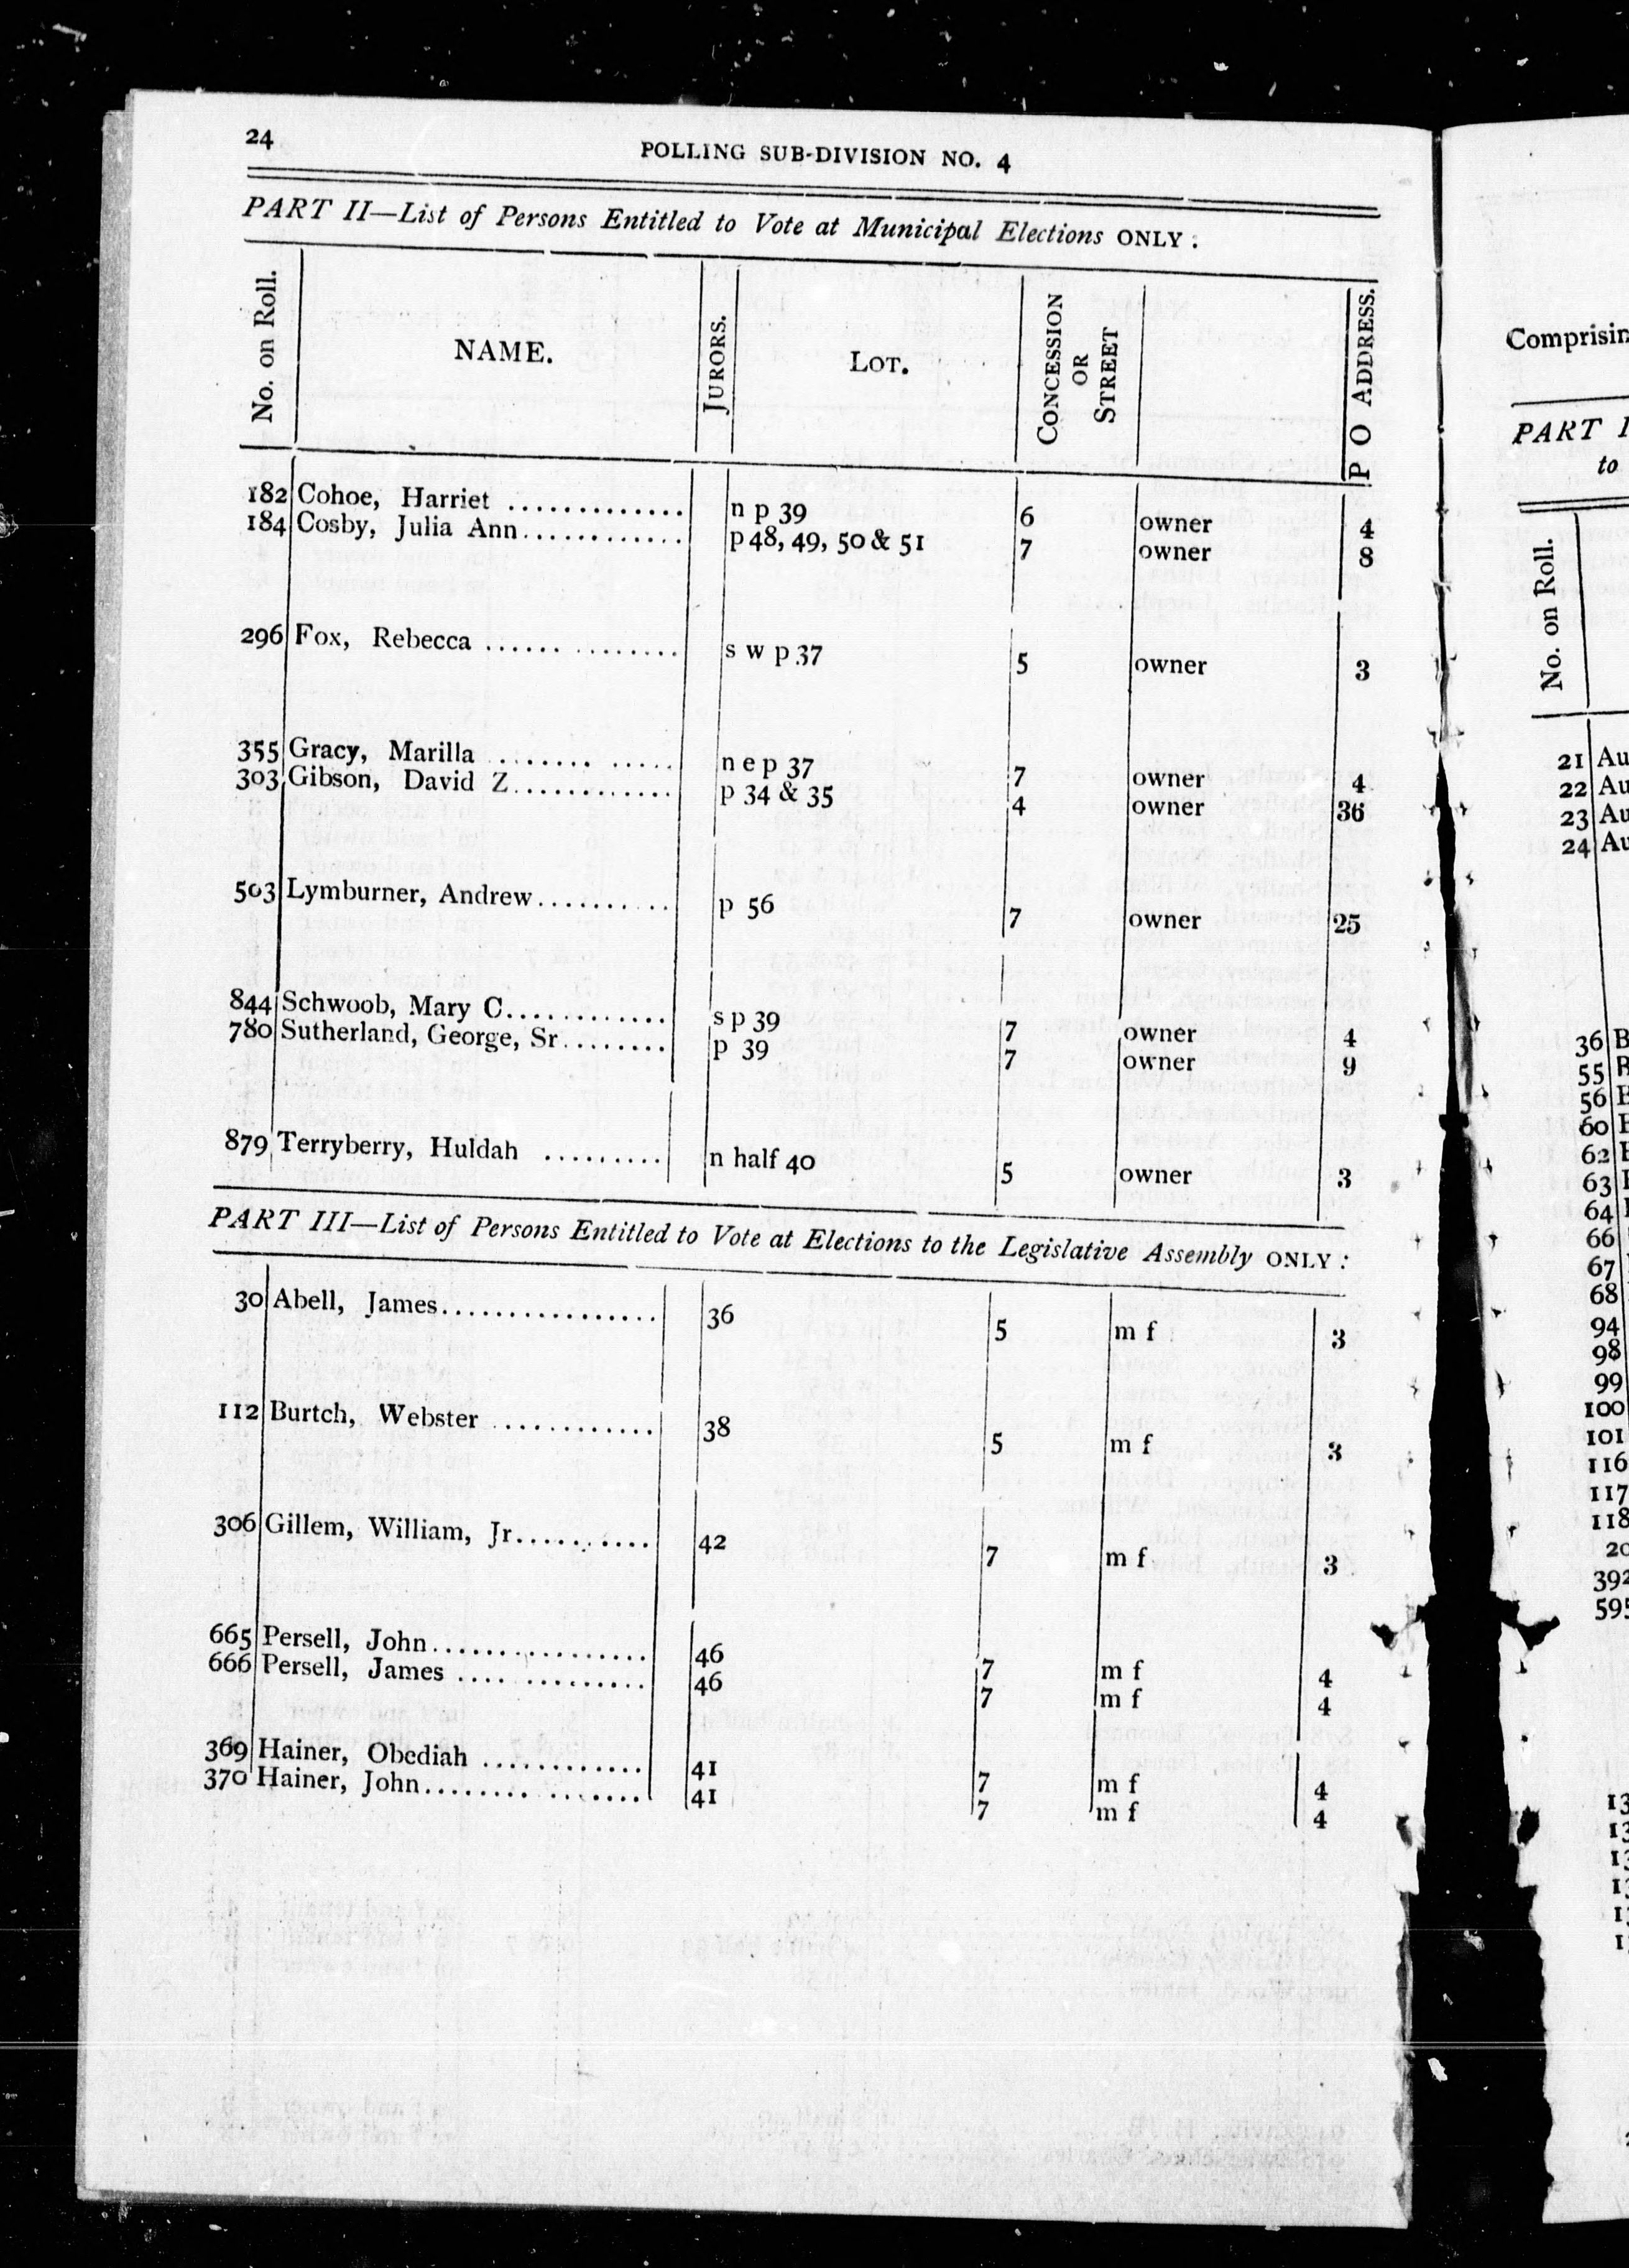 24
POLLING SUB-DIVISION NO. 4
PART II—List of Persons Entitled to Vote at Municipal Elections ONLY:
No. on Roll. NAME. JURORS. LOT. CONCESSION OR STREET P O ADDRESS.
182 Cohoe, Harriet ............. n p 39 6 owner 4
184 Cosby, Julia Ann............ p 48, 49, 50 & 51 7 owner 8
296 Fox, Rebecca ...... ........ s w p 37 5 owner 3
355 Gracy, Marilla ........ ..... n e p 37 7 owner 4
303 Gibson, David Z............ p 34 & 35 4 owner 36
503 Lymburner, Andrew.......... p 56 7 owner 25
844 Schwoob, Mary C............ s p 39 7 owner 4
780 Sutherland, George, Sr........ p 39 7 owner 9
879 Terryberry, Huldah ......... n half 40 5 owner 3
PART III—List of Persons Entitled to Vote at Elections to the Legislative Assembly ONLY:
30 Abell, James................ 36 5 m f 3
112 Burtch, Webster ............ 38 5 m f 3
306 Gillem, William, Jr.......... 42 7 m f 3
665 Persell, John................ 46 7 m f 4
666 Persell, James .... ......... 46 7 m f 4
369 Hainer, Obediah ............ 41 7 m f 4
370 Hainer, John........ ....... 41 7 m f 4
PART
to
No. on Roll.
21 Au
22 Au
23 Au
24 Au
36 B
55
56
60
62
63
64
66
67
68
94
98
99
100
101
116
117
118